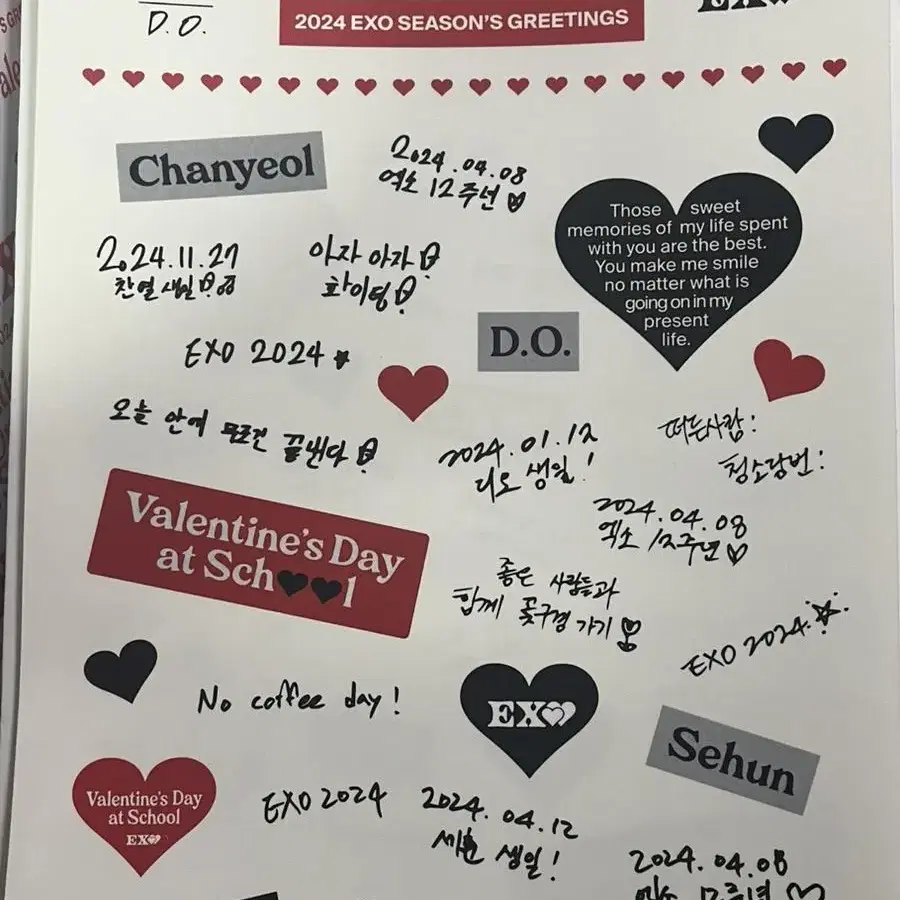 D.O.
2024 EXO SEASON'S GREETINGS
EXO
Chanyeol
2024.04.08
엑소 12주년
Those sweet
memories of my life spent
with you are the best.
You make me smile
no matter what is
going on in my
present
life.
2024.11.27
찬열 생일
아자 아자
화이팅
EXO 2024
D.O.
오늘 안에 무조건 끝낸다
2024.01.12
디오 생일!
떠든사람:
청소당번:
2024.04.08
엑소 12주년
Valentine's Day
at School
좋은 사람들과
함께 꽃구경 가기
EXO 2024
No coffee day!
EXO
Sehun
Valentine's Day
at School
EXO
EXO 2024
2024.04.12
세훈 생일!
2024.04.08
엑소 12주년